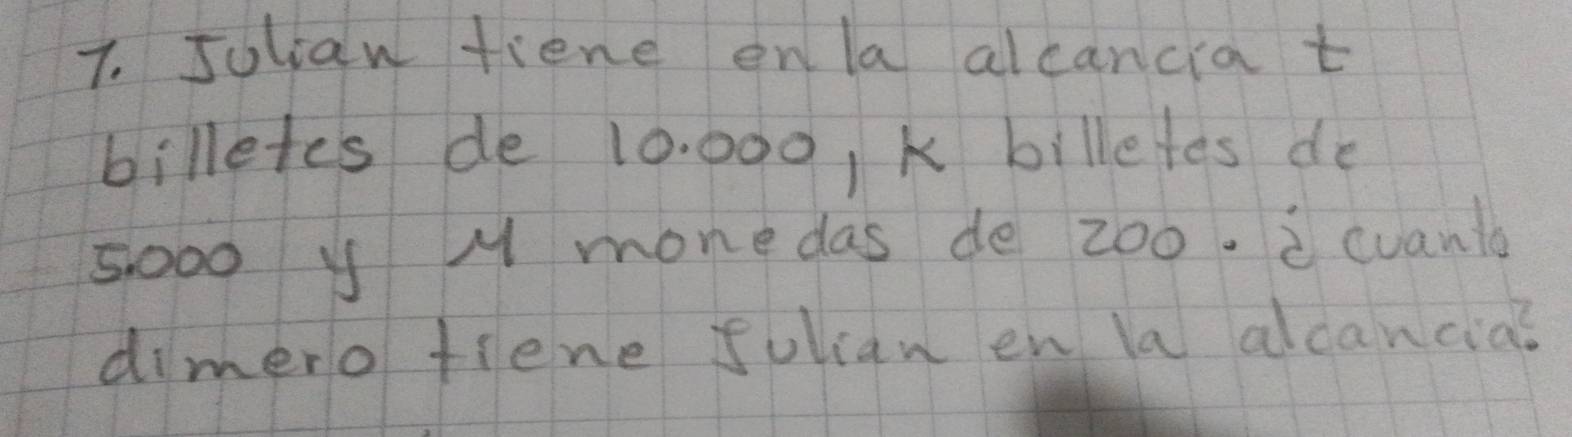 7. Julian tiene en la alcancia t
billetes de 10.000, K billetes de
5.000 y M monedas de 200. ¿ cuanto
dimero tiene Julian en la alcancia?